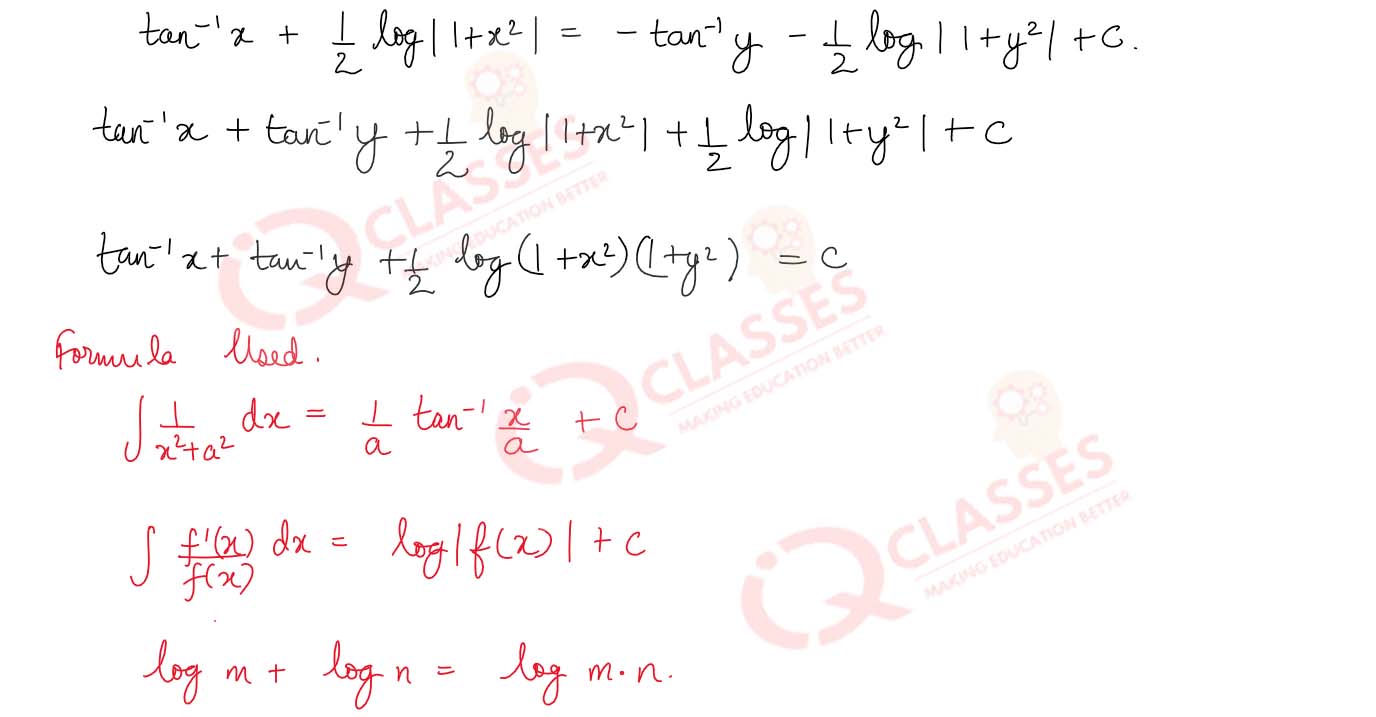 tan⁻¹x + 1/2 log|1+x²| = -tan⁻¹y - 1/2 log|1+y²| + C.
tan⁻¹x + tan⁻¹y + 1/2 log|1+x²| + 1/2 log|1+y²| + C
tan⁻¹x + tan⁻¹y + 1/2 log(1+x²)(1+y²) = C
Formula Used.
∫ 1/(x²+a²) dx = 1/a tan⁻¹ x/a + C
∫ f'(x)/f(x) dx = log|f(x)| + C
log m + log n = log m·n.
IQ CLASSES
MAKING EDUCATION BETTER
IQ CLASSES
MAKING EDUCATION BETTER
IQ CLASSES
MAKING EDUCATION BETTER